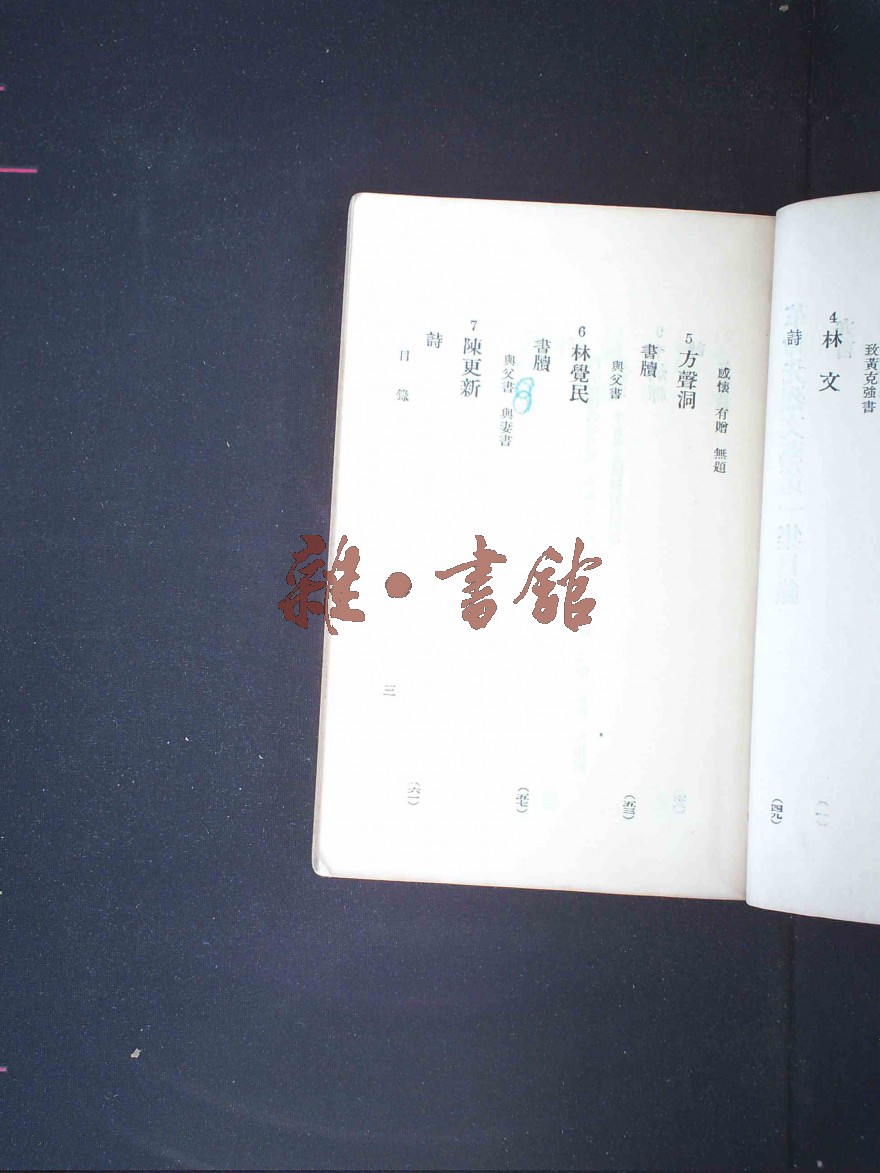 致黃克強書
4 林文
詩 (四九)
感懷 有贈 無題
5 方聲洞
書牘 (五三)
與父書
6 林覺民
書牘 (五七)
與父書 與妻書
7 陳更新
詩 (六一)
目錄 三
雜·書館